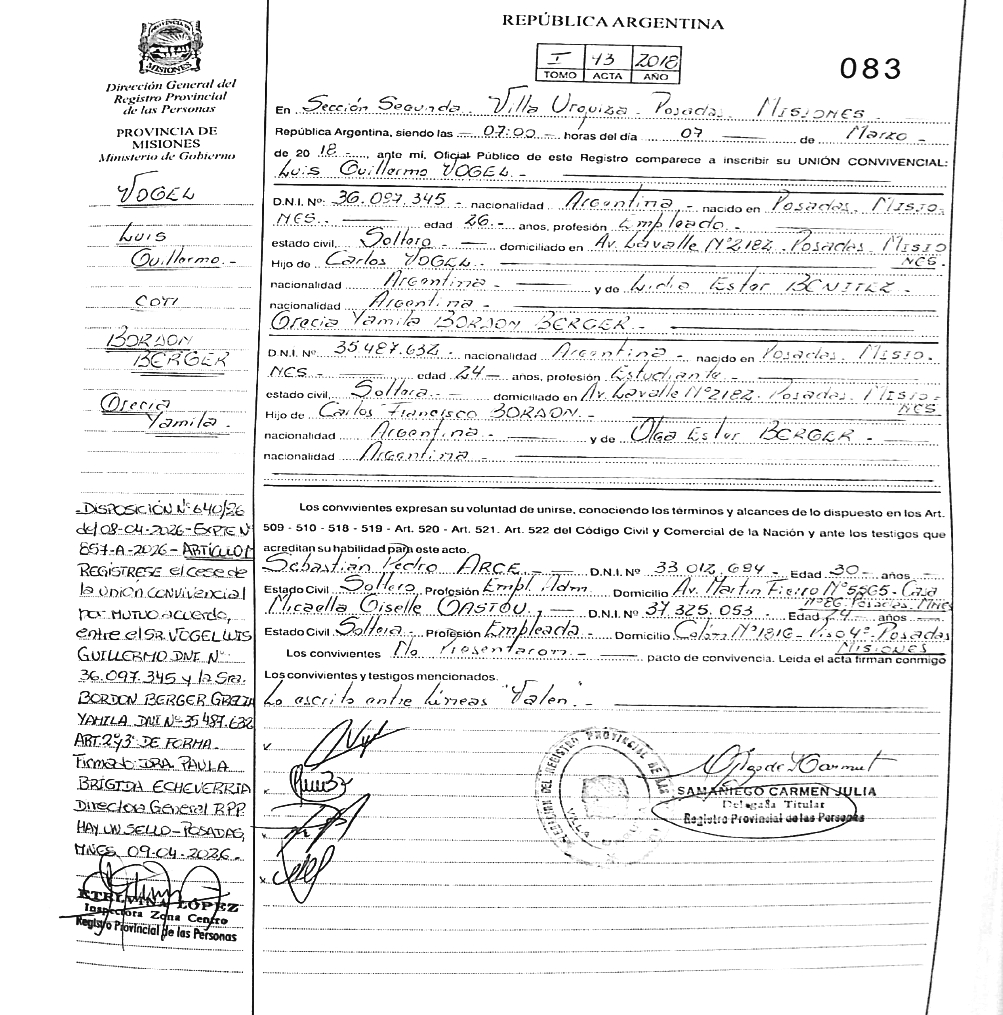 PROVINCIA DE
MISIONES
Dirección General del
Registro Provincial
de las Personas
PROVINCIA DE
MISIONES
Ministerio de Gobierno
VOGEL
Luis
Guillermo.-
COTI
BORDON
BERGER
Grecia
Yamila.-
DISPOSICIÓN Nº 640/26
del 08-04-2026- EXPTE Nº
857-A-2026- ARTÍCULO 1º
REGÍSTRESE el cese de
la unión convivencial
por MUTUO acuerdo,
entre el SR. VOGEL LUIS
GUILLERMO DNI Nº
36.097.345 y la Sra.
BORDON BERGER GRECIA
YAMILA DNI Nº 35487.632
ART. 2º y 3º DE FORMA.
Firmado: DRA. PAULA
BRIGIDA ECHEVERRIA
Directora General R.P.P.
HAY UN SELLO - POSADAS,
MNES, 09-04-2026.-
ETELVINA LÓPEZ
Inspectora Zona Centro
Registro Provincial de las Personas
REPÚBLICA ARGENTINA
I 43 2018
TOMO ACTA AÑO
083
En Sección Segunda Villa Urquiza Posadas. MISIONES
República Argentina, siendo las 07:00 horas del día 07 de Marzo
de 2018.-, ante mí, Oficial Público de este Registro comparece a inscribir su UNIÓN CONVIVENCIAL:
Luis Guillermo VOGEL.-
D.N.I. Nº: 36.097.345 - nacionalidad Argentina - nacido en Posadas. Misio
nes.- edad 26.- años, profesión Empleado.-
estado civil, Soltero.- domiciliado en Av. Lavalle Nº2182. Posadas. Misio
nes.-
Hijo de Carlos VOGEL.-
nacionalidad Argentina.- y de Lidia Ester BENITEZ.-
nacionalidad Argentina.-
Grecia Yamila BORDON BERGER.-
D.N.I. Nº 35487.632 - nacionalidad Argentina - nacido en Posadas. Misio.
nes.- edad 24- años, profesión Estudiante.-
estado civil, Soltera.- domiciliado en Av. Lavalle Nº2182. Posadas. Misio.
nes
Hijo de Carlos Francisco BORDON.-
nacionalidad Argentina.- y de Olga Ester BERGER.-
nacionalidad Argentina.-
Los convivientes expresan su voluntad de unirse, conociendo los términos y alcances de lo dispuesto en los Art.
509 - 510 - 518 - 519 - Art. 520 - Art. 521. Art. 522 del Código Civil y Comercial de la Nación y ante los testigos que
acreditan su habilidad para este acto.
Sebastian Pedro ARCE D.N.I. Nº 33 012 694 - Edad 30 - años
Estado Civil Soltero, Profesión Empl. Adm. Domicilio Av. Martin Fierro Nº5265. Casa
Nº86. Posadas. Mnes
Micaella Giselle GASTOU, D.N.I. Nº 37.325.053. Edad 24 años
Estado Civil Soltera - Profesión Empleada.- Domicilio Nº1816 - Posadas
MISIONES
Los convivientes No Presentaron.- pacto de convivencia. Leida el acta firman conmigo
Los convivientes y testigos mencionados.
Lo escrito entre líneas "Valen".-
DELEGACION DEL REGISTRO PROVINCIAL DE LAS
VILLA
SAMANIEGO CARMEN JULIA
Delegada Titular
Registro Provincial de las Personas